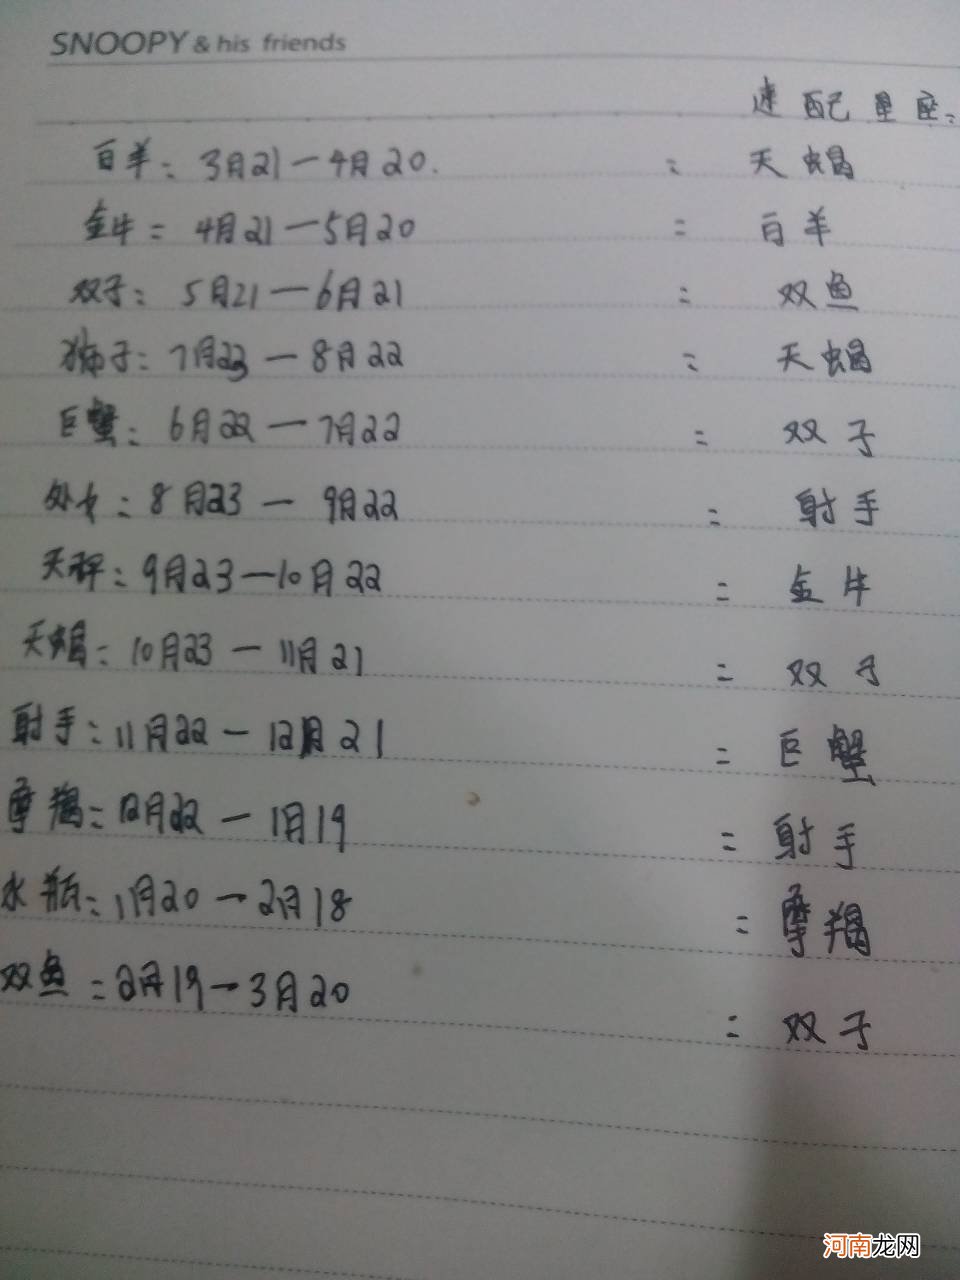 SNOOPY & his friends
速配星座:
白羊: 3月21—4月20. : 天蝎
金牛: 4月21—5月20 : 白羊
双子: 5月21—6月21 : 双鱼
狮子: 7月23—8月22 : 天蝎
巨蟹: 6月22—7月22 : 双子
处女: 8月23—9月22 : 射手
天秤: 9月23—10月22 : 金牛
天蝎: 10月23—11月21 : 双子
射手: 11月22—12月21 : 巨蟹
摩羯: 12月22—1月19 : 射手
水瓶: 1月20—2月18 : 摩羯
双鱼: 2月19—3月20 : 双子
河南龙网